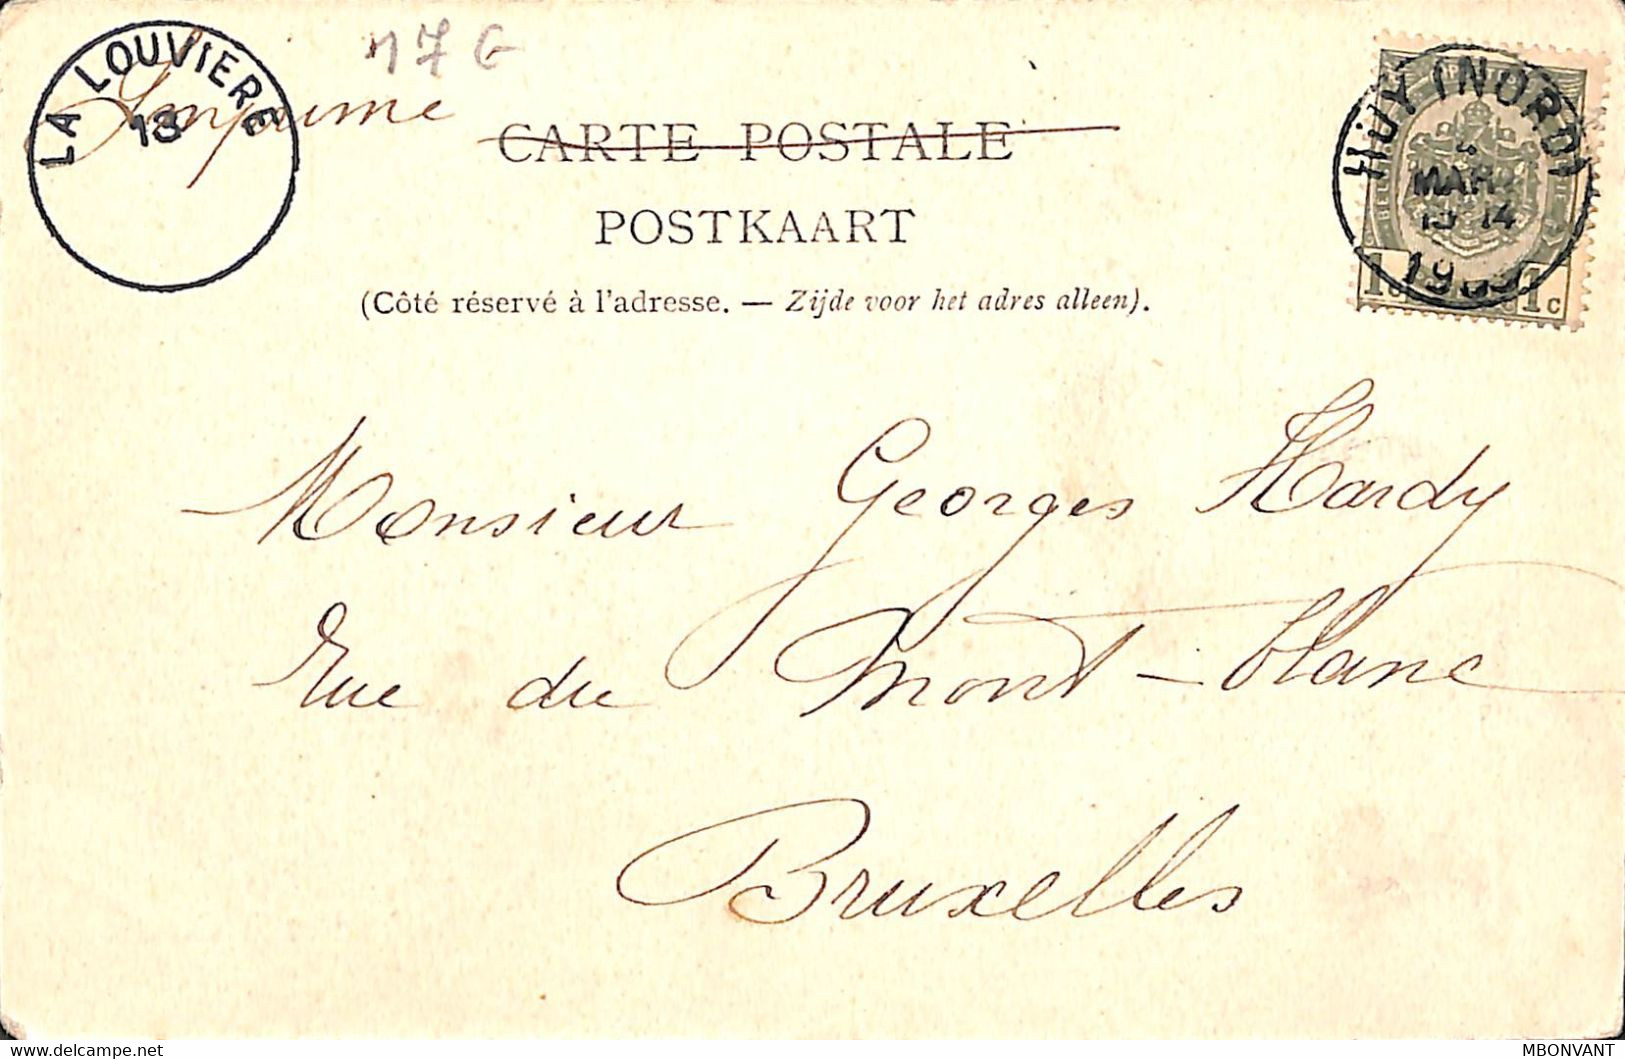 LA LOUVIERE
13
17 G
Imprimé
CARTE POSTALE
POSTKAART
(Côté réservé à l'adresse. — Zijde voor het adres alleen).
HUY (NORD)
MARS
1 c 1 c
Monsieur Georges Hardy
Rue du Mont-blanc
Bruxelles
MBONVANT